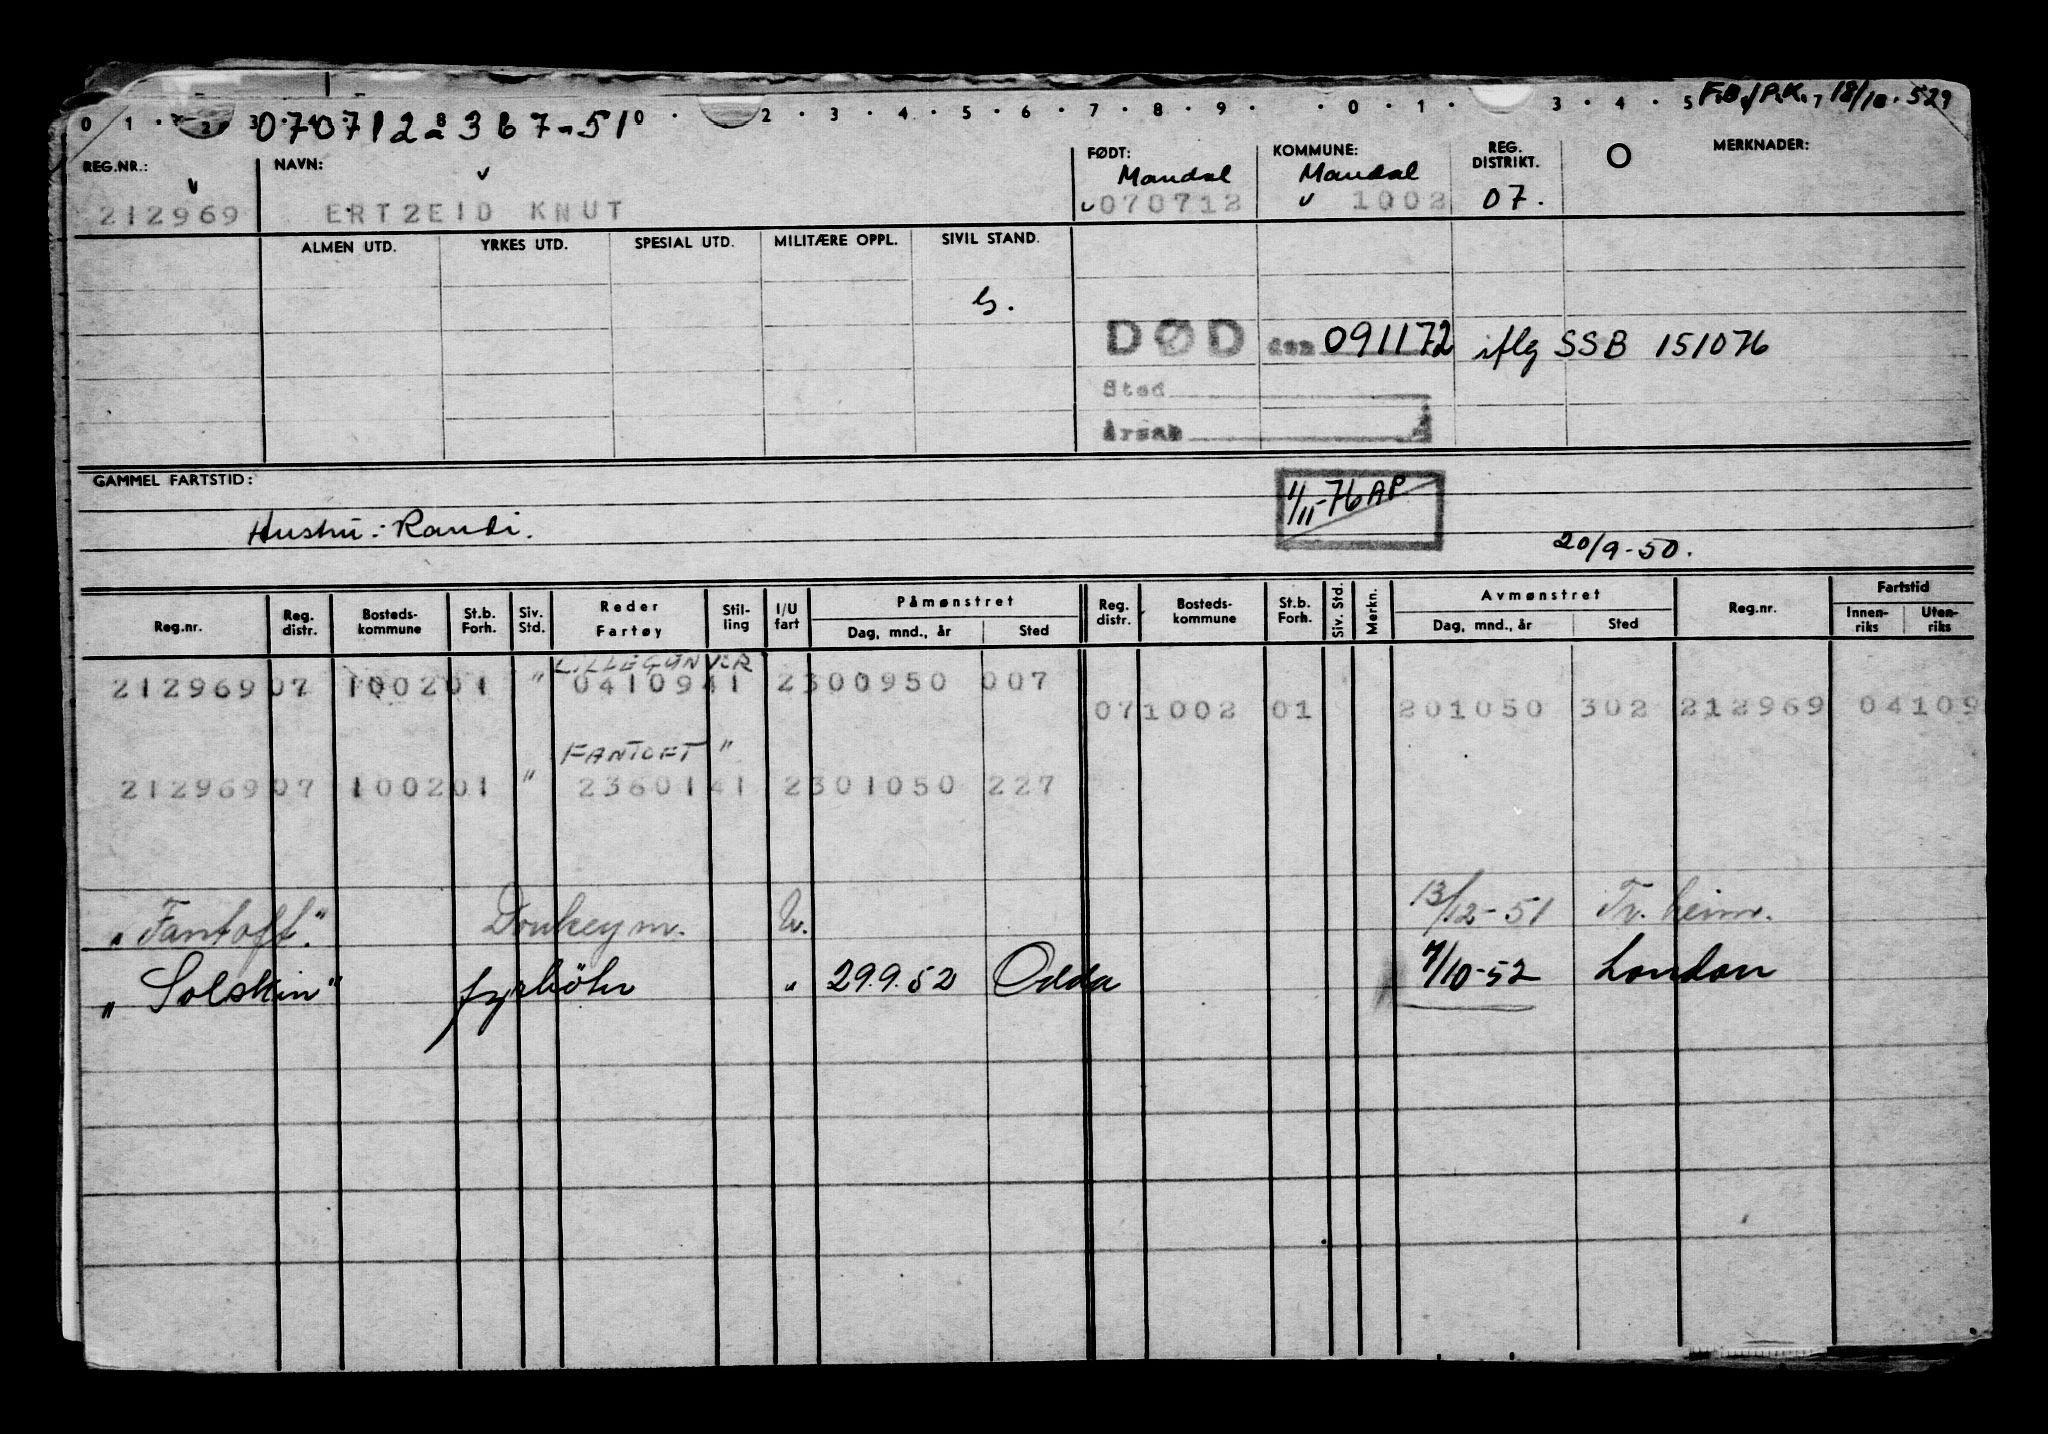 F.D./P.K., 18/10. 529
0 1 2 3 8 0 2 3 4 5 6 7 8 9 0 1 3 4 5 7
070712-367-51
REG.NR.: NAVN: FØDT: KOMMUNE: REG. DISTRIKT. MERKNADER:
Mandal Mandal
212969 ERTZEID KNUT 070712 1002 07.
ALMEN UTD. YRKES UTD. SPESIAL UTD. MILITÆRE OPPL. SIVIL STAND.
G.
DØD den 091172 iflg SSB 151076
Sted
Årsak
GAMMEL FARTSTID:
1/11-76 AP
Hustru: Randi.
20/9-50.
Reg.nr. Reg. distr. Bosteds-kommune St.b. Forh. Siv. Std. Reder Fartøy Stil-ling I/U fart Påmønstret Dag, mnd., år Sted Reg. distr. Bosteds-kommune St.b. Forh. Siv. Std. Merkn. Avmønstret Dag, mnd., år Sted Reg.nr. Fartstid Innen-riks Uten-riks
LILLEGUNVER
212969 07 1002 01 " 04109 41 2 300950 007
07 1002 01 201050 302 212969 04109
FANTOFT "
212969 07 1002 01 " 23601 41 2 301050 227
"Fantoft." Donkeym. U. 13/12-51 Tr.heim.
"Solskin" fyrböter " 29.9.52 Odda 7/10-52 London